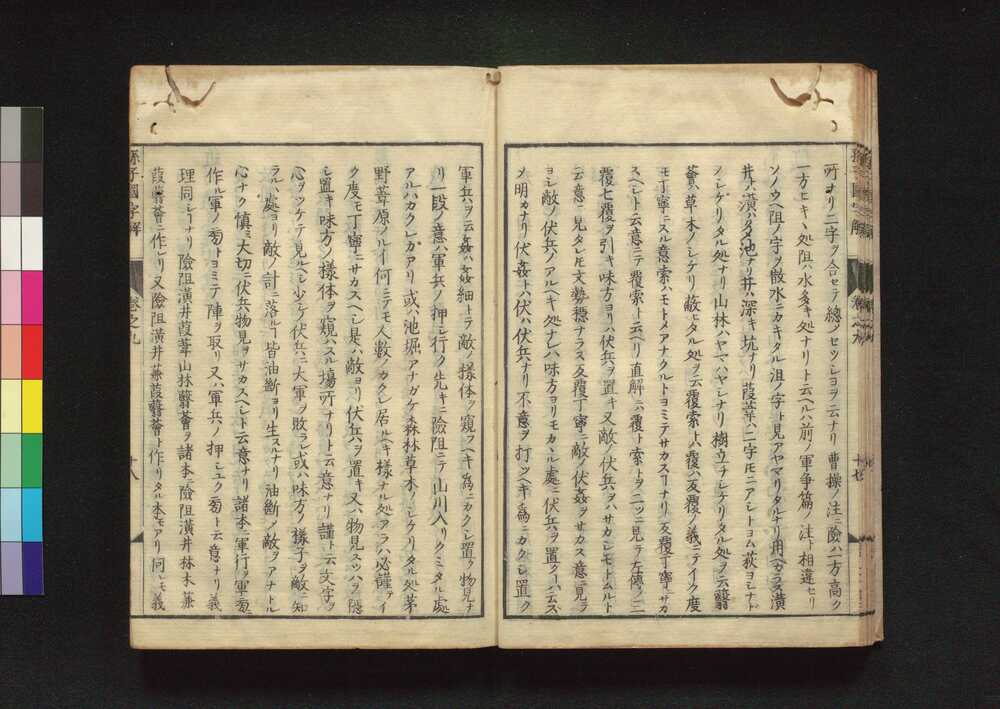 所ナリ二字ヲ合セテ總ノセツシヨヲ云ナリ曹操ノ注ニ險ハ一方高ク
一方ヒキヽ処阻ハ水多キ処ナリト云ヘルハ前ノ軍争篇ノ注ト相違セリ
ソノウヘ阻ノ字ヲ散水ニカキタル沮ノ字ト見アヤマリタルナリ用ベカラス潢
井ノ潢ハクタメ池ナリ井ハ深キ坑ナリ葭葦ハ二字モニアシトヨム荻ヨシナド
ノシゲリタル処ナリ山林ハヤマハヤシナリ樹立チシゲリタル処ヲ云蘙
薈ハ草木ノシゲリ蔽ヒタル処ヲ云覆索トハ覆ハ反覆ノ義ニテイク度
モ丁寧ニスル意索ハモトメアナクルトヨミテサカスヿナリ反覆丁寧ニサカ
スヘシト云意ニテ覆索ト云ヘリ直解ニハ覆ト索トヲ二ツニ見テ左傳ノ三
覆七覆ヲ引キ味方ヨリハ伏兵ヲ置キ又敵ノ伏兵ヲハサガシモトムルト
云意ニ見タレモ文勢穏ナラス反覆丁寧ニ敵ノ伏姦ヲサカス意ニ見テ
ヨシ敵ノ伏兵ノアルヘキ処ナレハ味方ヨリモカヽル處ニ伏兵ヲ置クヿハ云ス
ノ明カナリ伏姦トハ伏ハ伏兵ナリ不意ヲ打ツヘキ為ニカクシ置ク
孫子國字解
卷之九
十七
軍兵ヲ云姦ハ姦細トテ敵ノ様体ヲ窺フヘキ為ニカクシ置ク物見ナ
リ一段ノ意ハ軍兵ノ押シ行ク先キニ險阻ニテ山川入リクミタル處
アルハカクレガアリ或ハ池堀アナガケ森林草木ノシゲリタル処茅
野葦原ノルイ何ニテモ人數ノカクレ居ルヘキ様ナル処アラハ必謹テイ
ク度モ丁寧ニサカスヘシ是ハ敵ヨリ伏兵ヲ置キ又ハ物見スツハヲ隠
シ置キ味方ノ様体ヲ窺ハスル塲所ナリト云意ナリ謹ト云文字ヲ
心ヲツケテ見ルヘシ少ケノ伏兵ニ大軍ヲ敗ラレ或ハ味方ノ様子ヲ敵ニ知
ラルヽ處ヨリ敵ノ計ニ落ルヿ皆油斷ヨリ生スルナリ油斷ノ敵ヲアナトル
心ナク慎ミ大切ニ伏兵物見ヲサカスヘシト云意ナリ諸本ニ軍行ヲ軍旁
作ル軍ノ旁トヨミテ陣ヲ取リ又ハ軍兵ノ押シユク旁ト云意ナリ義
理同シヿナリ險阻潢井葭葦山林蘙薈ヲ諸本ニ險阻潢井林木蒹
葭蘙薈ニ作レリ又險阻潢井蒹葭蘙薈ト作リタル本モアリ同シモ義
孫子國字解
卷之九
十八